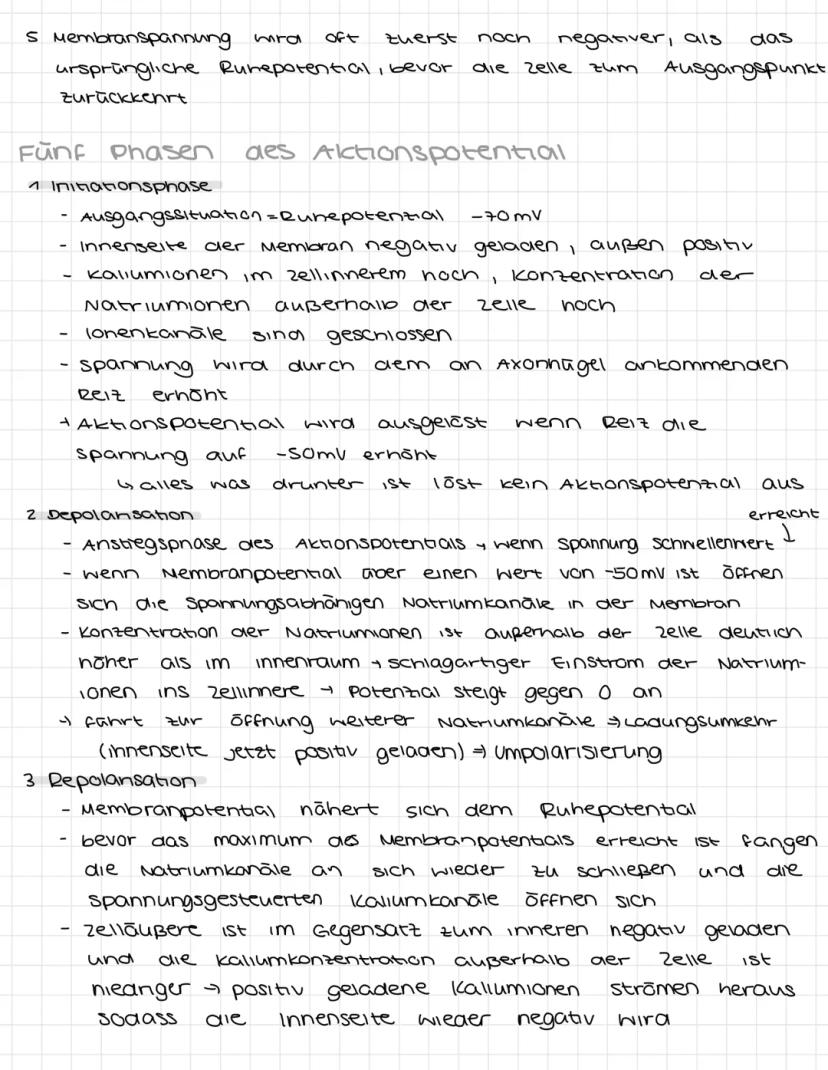 5 Membranspannung wird oft zuerst noch negativer, als das
ursprüngliche Ruhepotential, bevor die Zelle zum Ausgangspunkt
zurückkehrt
Fünf Phasen des Aktionspotential
1 Initiationsphase
- Ausgangssituation = Ruhepotenzial -70mV
- Innenseite der Membran negativ geladen, außen positiv
- Kaliumionen im Zellinnerem hoch, Konzentration der
Natriumionen außerhalb der Zelle hoch
- Ionenkanäle sind geschlossen
- Spannung wird durch dem an Axonhügel ankommenden
Reiz erhöht
→ Aktionspotential wird ausgelöst wenn Reiz die
Spannung auf -50mV erhöht
↳ alles was drunter ist löst kein Aktionspotenzial aus
2 Depolarisation
erreicht
- Anstiegsphase des Aktionspotentials → wenn Spannung Schwellenwert ↓
- wenn Membranpotential über einen Wert von -50mV ist öffnen
sich die Spannungsabhänigen Natriumkanäle in der Membran
- Konzentration der Natriumionen ist außerhalb der Zelle deutlich
höher als im Innenraum → schlagartiger Einstrom der Natrium-
ionen ins Zellinnere → Potenzial steigt gegen 0 an
→ führt zur Öffnung weiterer Natriumkanäle ⇒ Ladungsumkehr
(innenseite jetzt positiv geladen) ⇒ Umpolarisierung
3 Repolarisation
- Membranpotential nähert sich dem Ruhepotential
- bevor das maximum des Membranpotentials erreicht ist fangen
die Natriumkanäle an sich wieder zu schließen und die
spannungsgesteuerten Kaliumkanäle öffnen sich
- Zelläußere ist im Gegensatz zum inneren negativ geladen
und die Kaliumkonzentration außerhalb der Zelle ist
niedriger → positiv geladene Kaliumionen strömen heraus
sodass die Innenseite wieder negativ wird